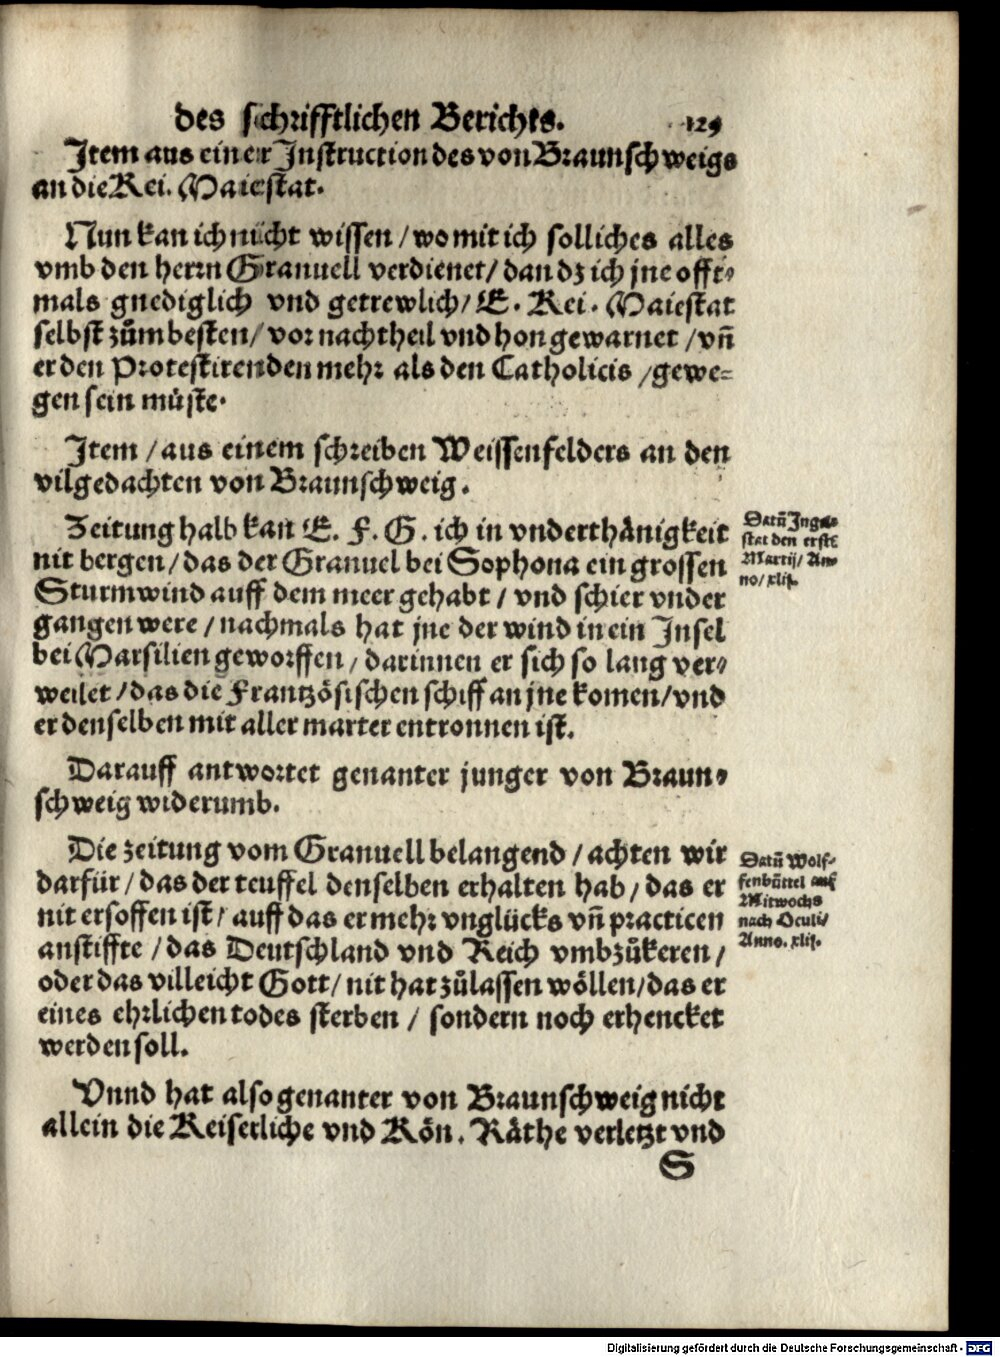 des schrifftlichen Berichts. 129
Item aus einer Instruction des von Braunschweigs
an die Kei. Maiestat.
Nun kan ich nücht wissen / wo mit ich solliches alles
vmb den herrn Granuell verdienet / dan dz ich jne offt⸗
mals gnediglich vnd getrewlich / E. Kei. Maiestat
selbst zům besten / vor nachtheil vnd hon gewarnet / vn̄
er den Protestirenden mehr als den Catholicis / gewe⸗
gen sein müste.
Item / aus einem schreiben Weissenfelders an den
vilgedachten von Braunschweig.
Zeitung halb kan E. F. G. ich in vnderthånigkeit
nit bergen / das der Granuel bei Sophona ein grossen
Sturmwind auff dem meer gehabt / vnd schier vnder
gangen were / nachmals hat jne der wind in ein Insel
bei Marsilien geworffen / darinnen er sich so lang ver⸗
weilet / das die Frantzösischen schiff an jne komen / vnd
er denselben mit aller marter entronnen ist.
Datū Ingol⸗
stat den erstē
Martij / An⸗
no / xlij.
Darauff antwortet genanter junger von Braun⸗
schweig widerumb.
Die zeitung vom Granuell belangend / achten wir
darfür / das der teuffel denselben erhalten hab / das er
nit ersoffen ist / auff das er mehr vnglücks vn̄ practicen
anstiffte / das Deutschland vnd Reich vmbzůkeren /
oder das villeicht Gott / nit hat zůlassen wöllen / das er
eines ehrlichen todes sterben / sondern noch erhencket
werden soll.
Datū Wolf⸗
fenbüttel auf
Mitwochs
nach Oculi /
Anno. xlij.
Vnnd hat also genanter von Braunschweig nicht
allein die Keiserliche vnd Kön. Räthe verletzt vnd
S
Digitalisierung gefördert durch die Deutsche Forschungsgemeinschaft - DFG